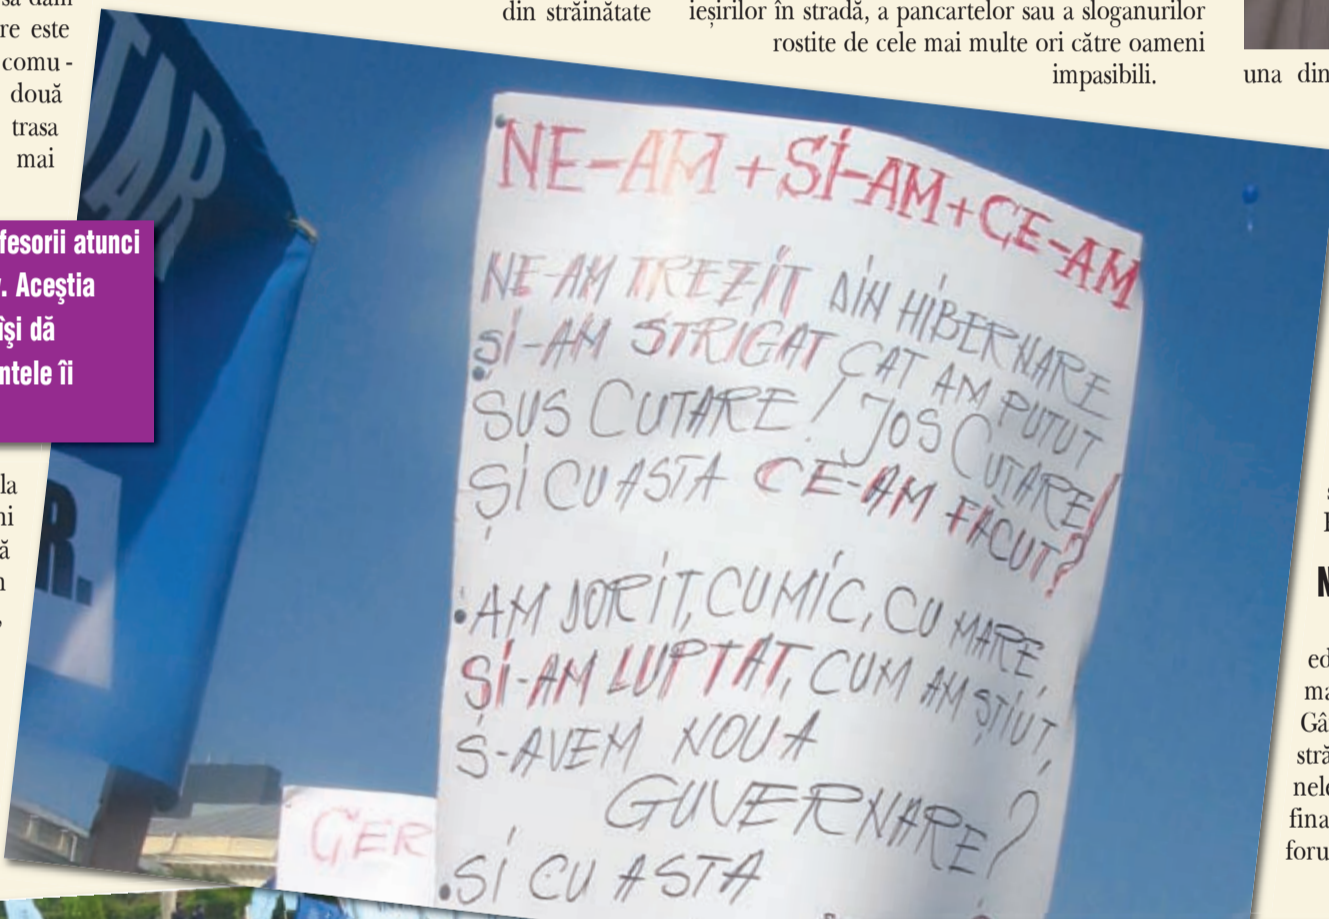 să dăm
re este
comu -
două
trasa
mai
din străinătate
ieşirilor în stradă, a pancartelor sau a sloganurilor
rostite de cele mai multe ori către oameni
impasibili.
una din
fesorii atunci
. Aceştia
îşi dă
ntele îi
la
ni
ă
TAR
R.
NE-AM + SI-AM + CE-AM
NE-AM TREZIT DIN HIBERNARE
SI-AM STRIGAT CAT AM PUTUT
SUS CUTARE! JOS CUTARE!
ŞI CU ASTA CE-AM FĂCUT?
AM DORIT, CU MIC, CU MARE,
ŞI-AM LUPTAT, CUM AM ŞTIUT,
S-AVEM NOUA
GUVERNARE?
SI CU ASTA
GER
N
ed
ma
Gâ
stră
nele
fina
foru